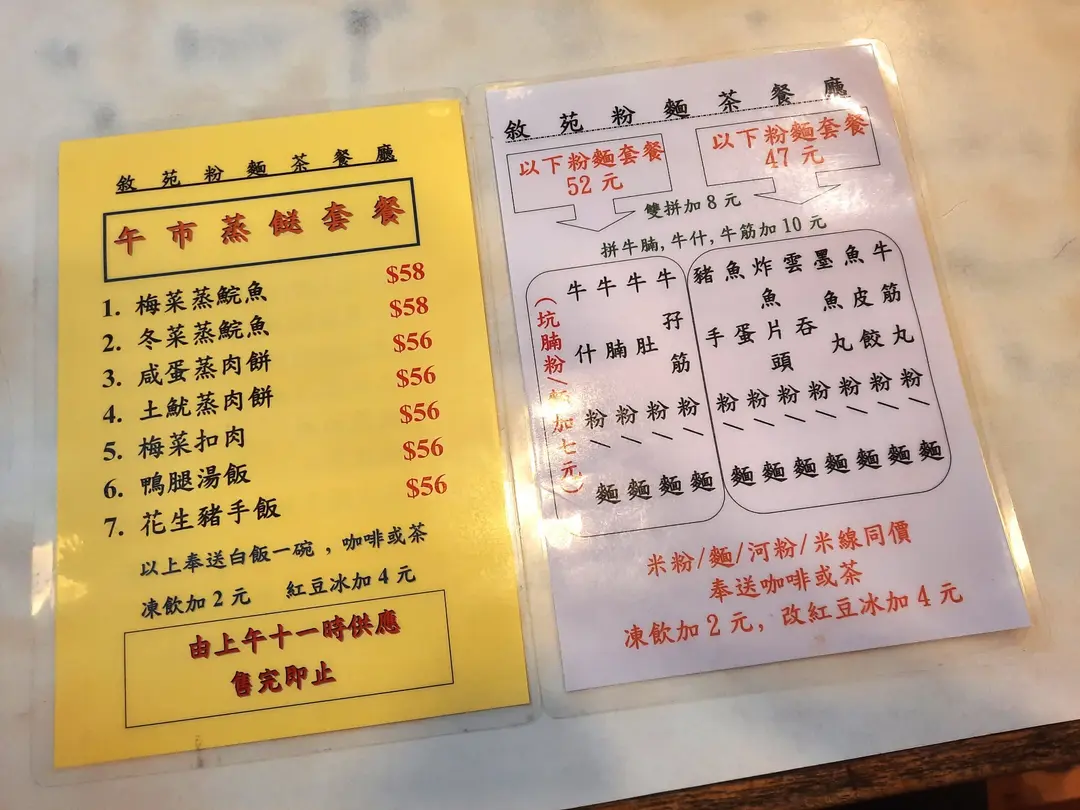 敘苑粉麵茶餐廳
午市蒸餸套餐
1. 梅菜蒸鯇魚 $58
2. 冬菜蒸鯇魚 $58
3. 咸蛋蒸肉餅 $56
4. 土魷蒸肉餅 $56
5. 梅菜扣肉 $56
6. 鴨腿湯飯 $56
7. 花生豬手飯 $56
以上奉送白飯一碗，咖啡或茶
凍飲加2元 紅豆冰加4元
由上午十一時供應
售完即止
敘苑粉麵茶餐廳
以下粉麵套餐
52元
以下粉麵套餐
47元
雙拼加8元
拼牛腩,牛什,牛筋加10元
(坑腩粉/加七元)
牛什粉/麵
牛腩粉/麵
牛肚粉/麵
牛孖筋粉/麵
豬手粉/麵
魚蛋粉/麵
炸魚片頭粉/麵
雲吞粉/麵
墨魚丸粉/麵
魚皮餃粉/麵
牛筋丸粉/麵
米粉/麵/河粉/米線同價
奉送咖啡或茶
凍飲加2元, 改紅豆冰加4元